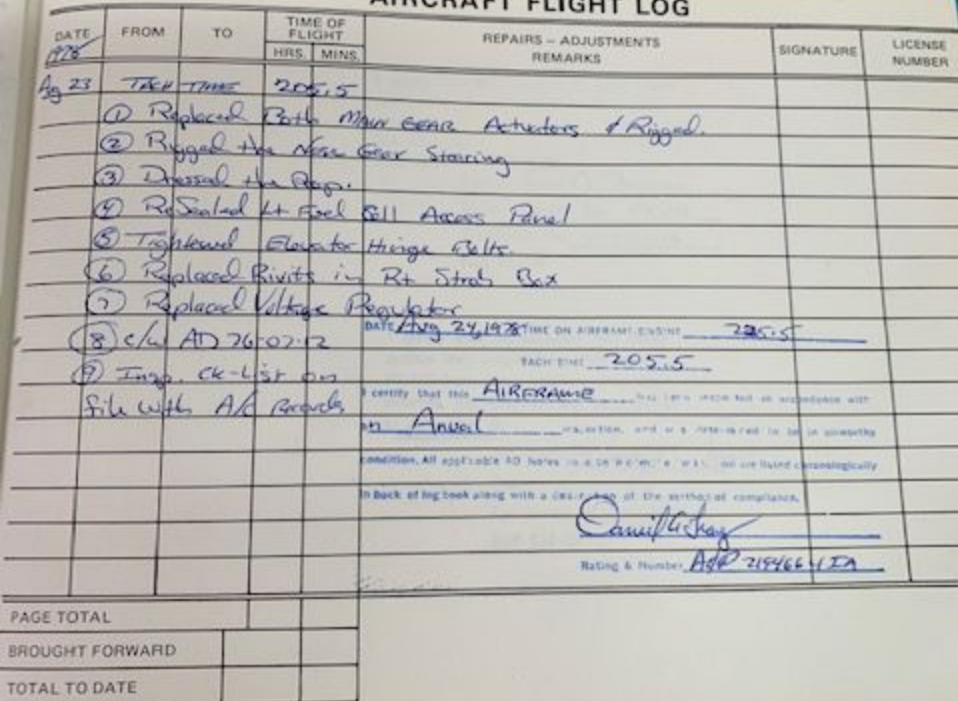 AIRCRAFT FLIGHT LOG
DATE FROM TO TIME OF FLIGHT REPAIRS – ADJUSTMENTS REMARKS SIGNATURE LICENSE NUMBER
1978 HRS. MINS.
Ag 23 TACH TIME 205.5
① Replaced Both MAIN GEAR Actuators & Rigged.
② Rigged the Nose Gear Stearing
③ Dressed the Prop.
④ ReSealed Lt Fuel Cell Access Panel
⑤ Tightened Elevator Hinge Bolts.
⑥ Replaced Rivits in Rt Strob Box
⑦ Replaced Voltage Regulator
DATE Aug 24, 1978 TIME ON AIRFRAME, ENGINE
⑧ c/w AD 76-07-12
TACH TIME 205.5
⑨ Insp. ck-List on
file with A/C Records
I certify that this AIRFRAME has been inspected in accordance with
an Anual inspection, and was determined to be in airworthy
condition. All applicable AD Notes are listed chronologically
in back of log book along with a description of the method of compliance.
Rating & Number A&P IA
PAGE TOTAL
BROUGHT FORWARD
TOTAL TO DATE